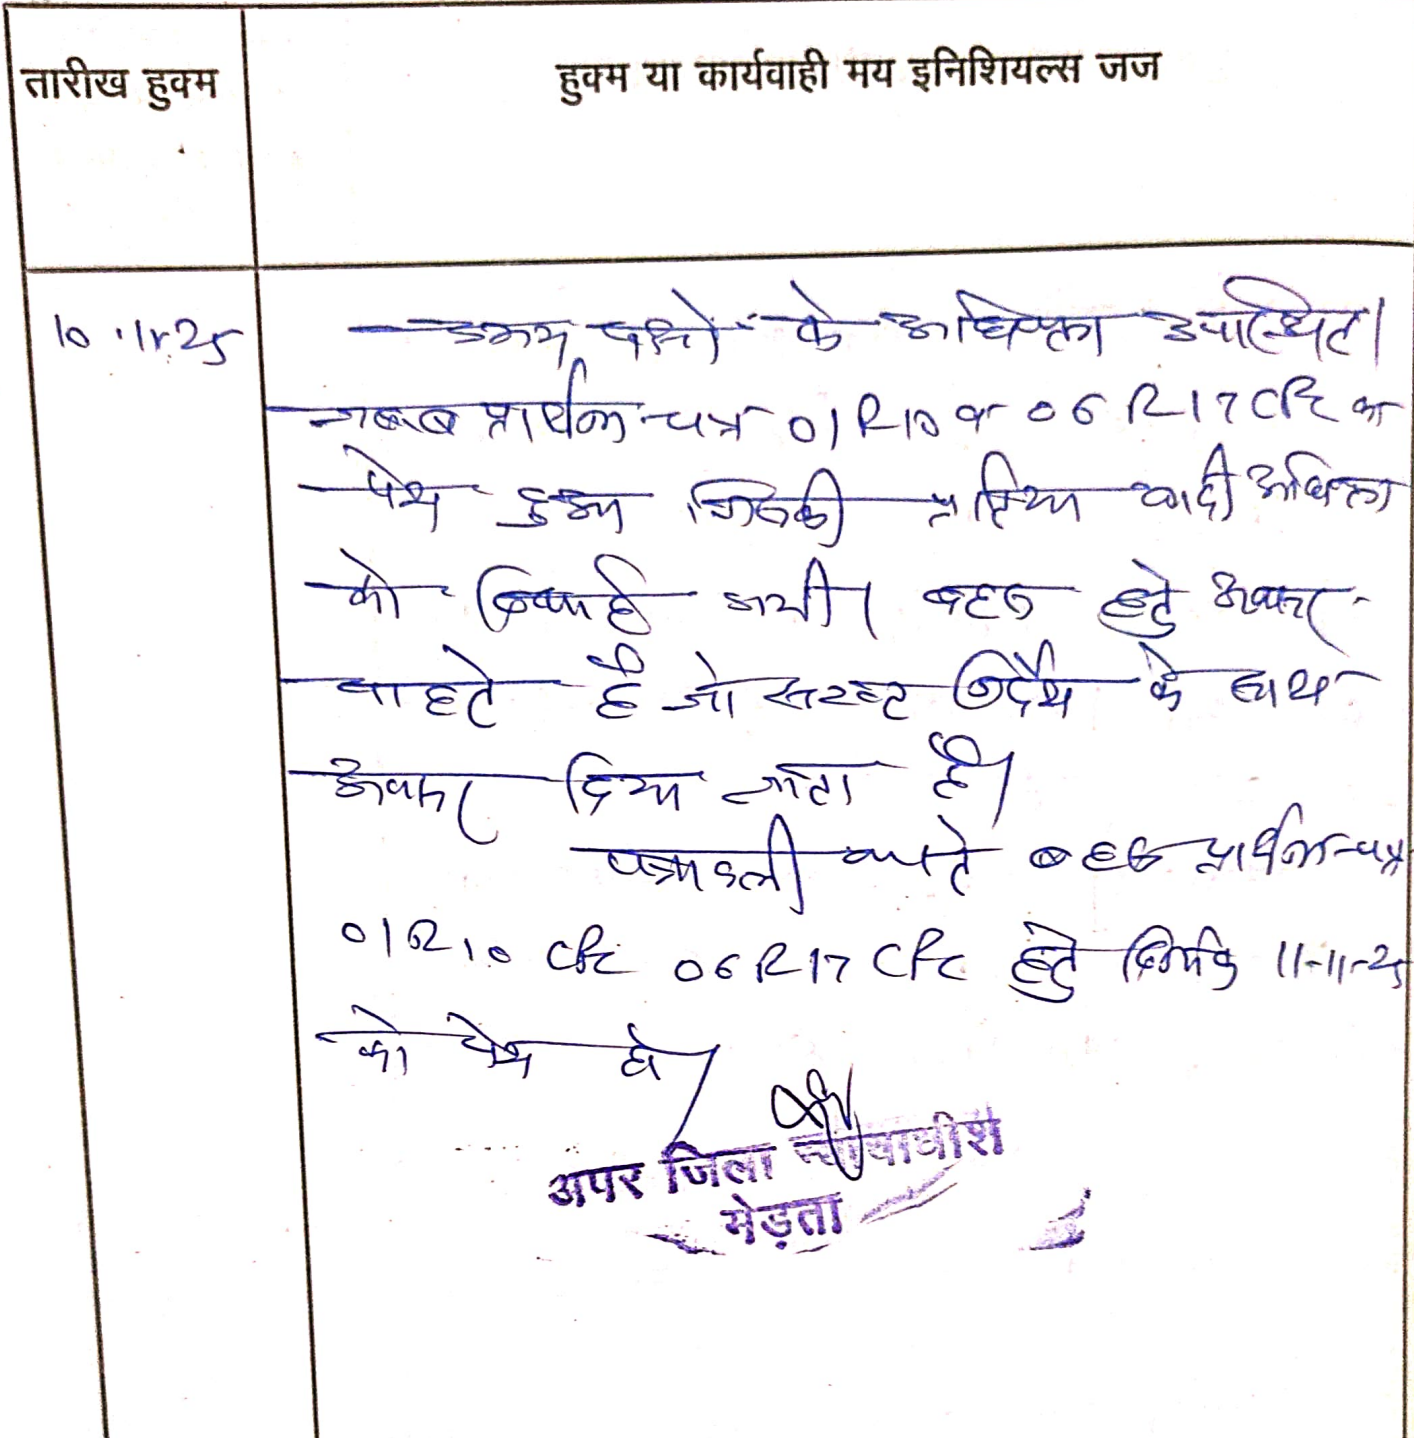 तारीख हुक्म
हुक्म या कार्यवाही मय इनिशियल्स जज
10.11.25
उभय पक्षों के अधिवक्ता उपस्थित।
जवाब प्रार्थना-पत्र 01 R 10 व 06 R 17 CPC का
पेश हुआ जिसकी प्रतिया वादी अधिवक्ता
को दिलाई गयी। बहस हेतु अवसर
चाहते है जो सख्त निर्देश के साथ
अवसर दिया जाता है।
पत्रावली वास्ते बहस प्रार्थना-पत्र
01 R 10 CPC 06 R 17 CPC हेतु दिनांक 11-11-25
को पेश हो।
अपर जिला न्यायाधीश
मेड़ता